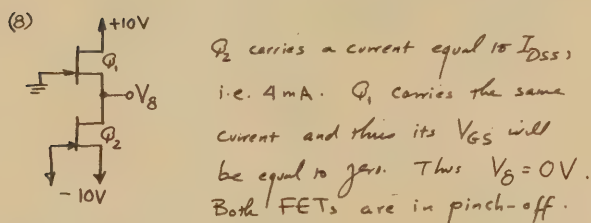 (8)
+10V
Q₁
V₈
Q₂
-10V
Q₂ carries a current equal to I_DSS,
i.e. 4 mA. Q₁ carries the same
current and thus its V_GS will
be equal to zero. Thus V₈ = 0V.
Both FETs are in pinch-off.